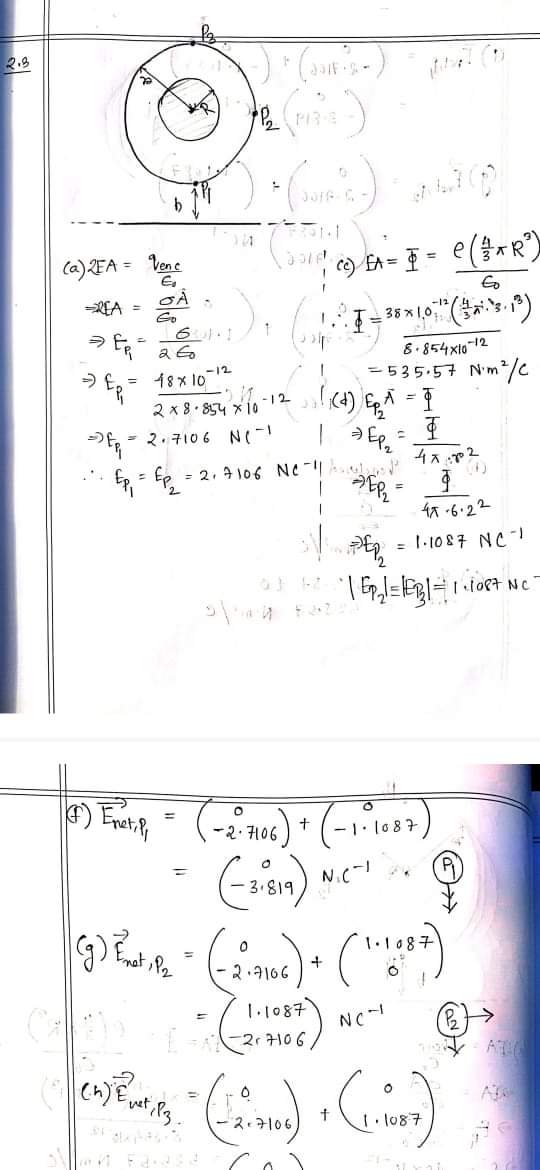 2.3
P3
r
R
P2
P1
b
(a) 2EA = qenc/ε0
⇒ 2EA = σA/ε0
⇒ EP1 = σ/2ε0
⇒ EP1 = 48 × 10^-12 / 2 × 8.854 × 10^-12
⇒ EP1 = 2.7106 NC^-1
∴ EP1 = EP2 = 2.7106 NC^-1
(c) EA = Φ = ρ(4/3 π R^3)/ε0
∴ Φ = 38 × 10^-12 (4/3 π · 3.1^3) / 8.854×10^-12
= 535.57 N·m^2/C
(d) EP2 A = Φ
⇒ EP2 = Φ / 4π · r^2
⇒ EP2 = Φ / 4π · 6.2^2
⇒ EP2 = 1.1087 NC^-1
|EP2| = |EP3| = 1.1087 NC^-
(f) Enet,P1 = (0, -2.7106) + (0, -1.1087)
= (0, -3.819) N.C^-1
P1
(g) Enet,P2 = (0, -2.7106) + (1.1087, 0)
= (1.1087, -2.7106) NC^-1
P2
(h) Enet,P3 = (0, -2.7106) + (0, 1.1087)